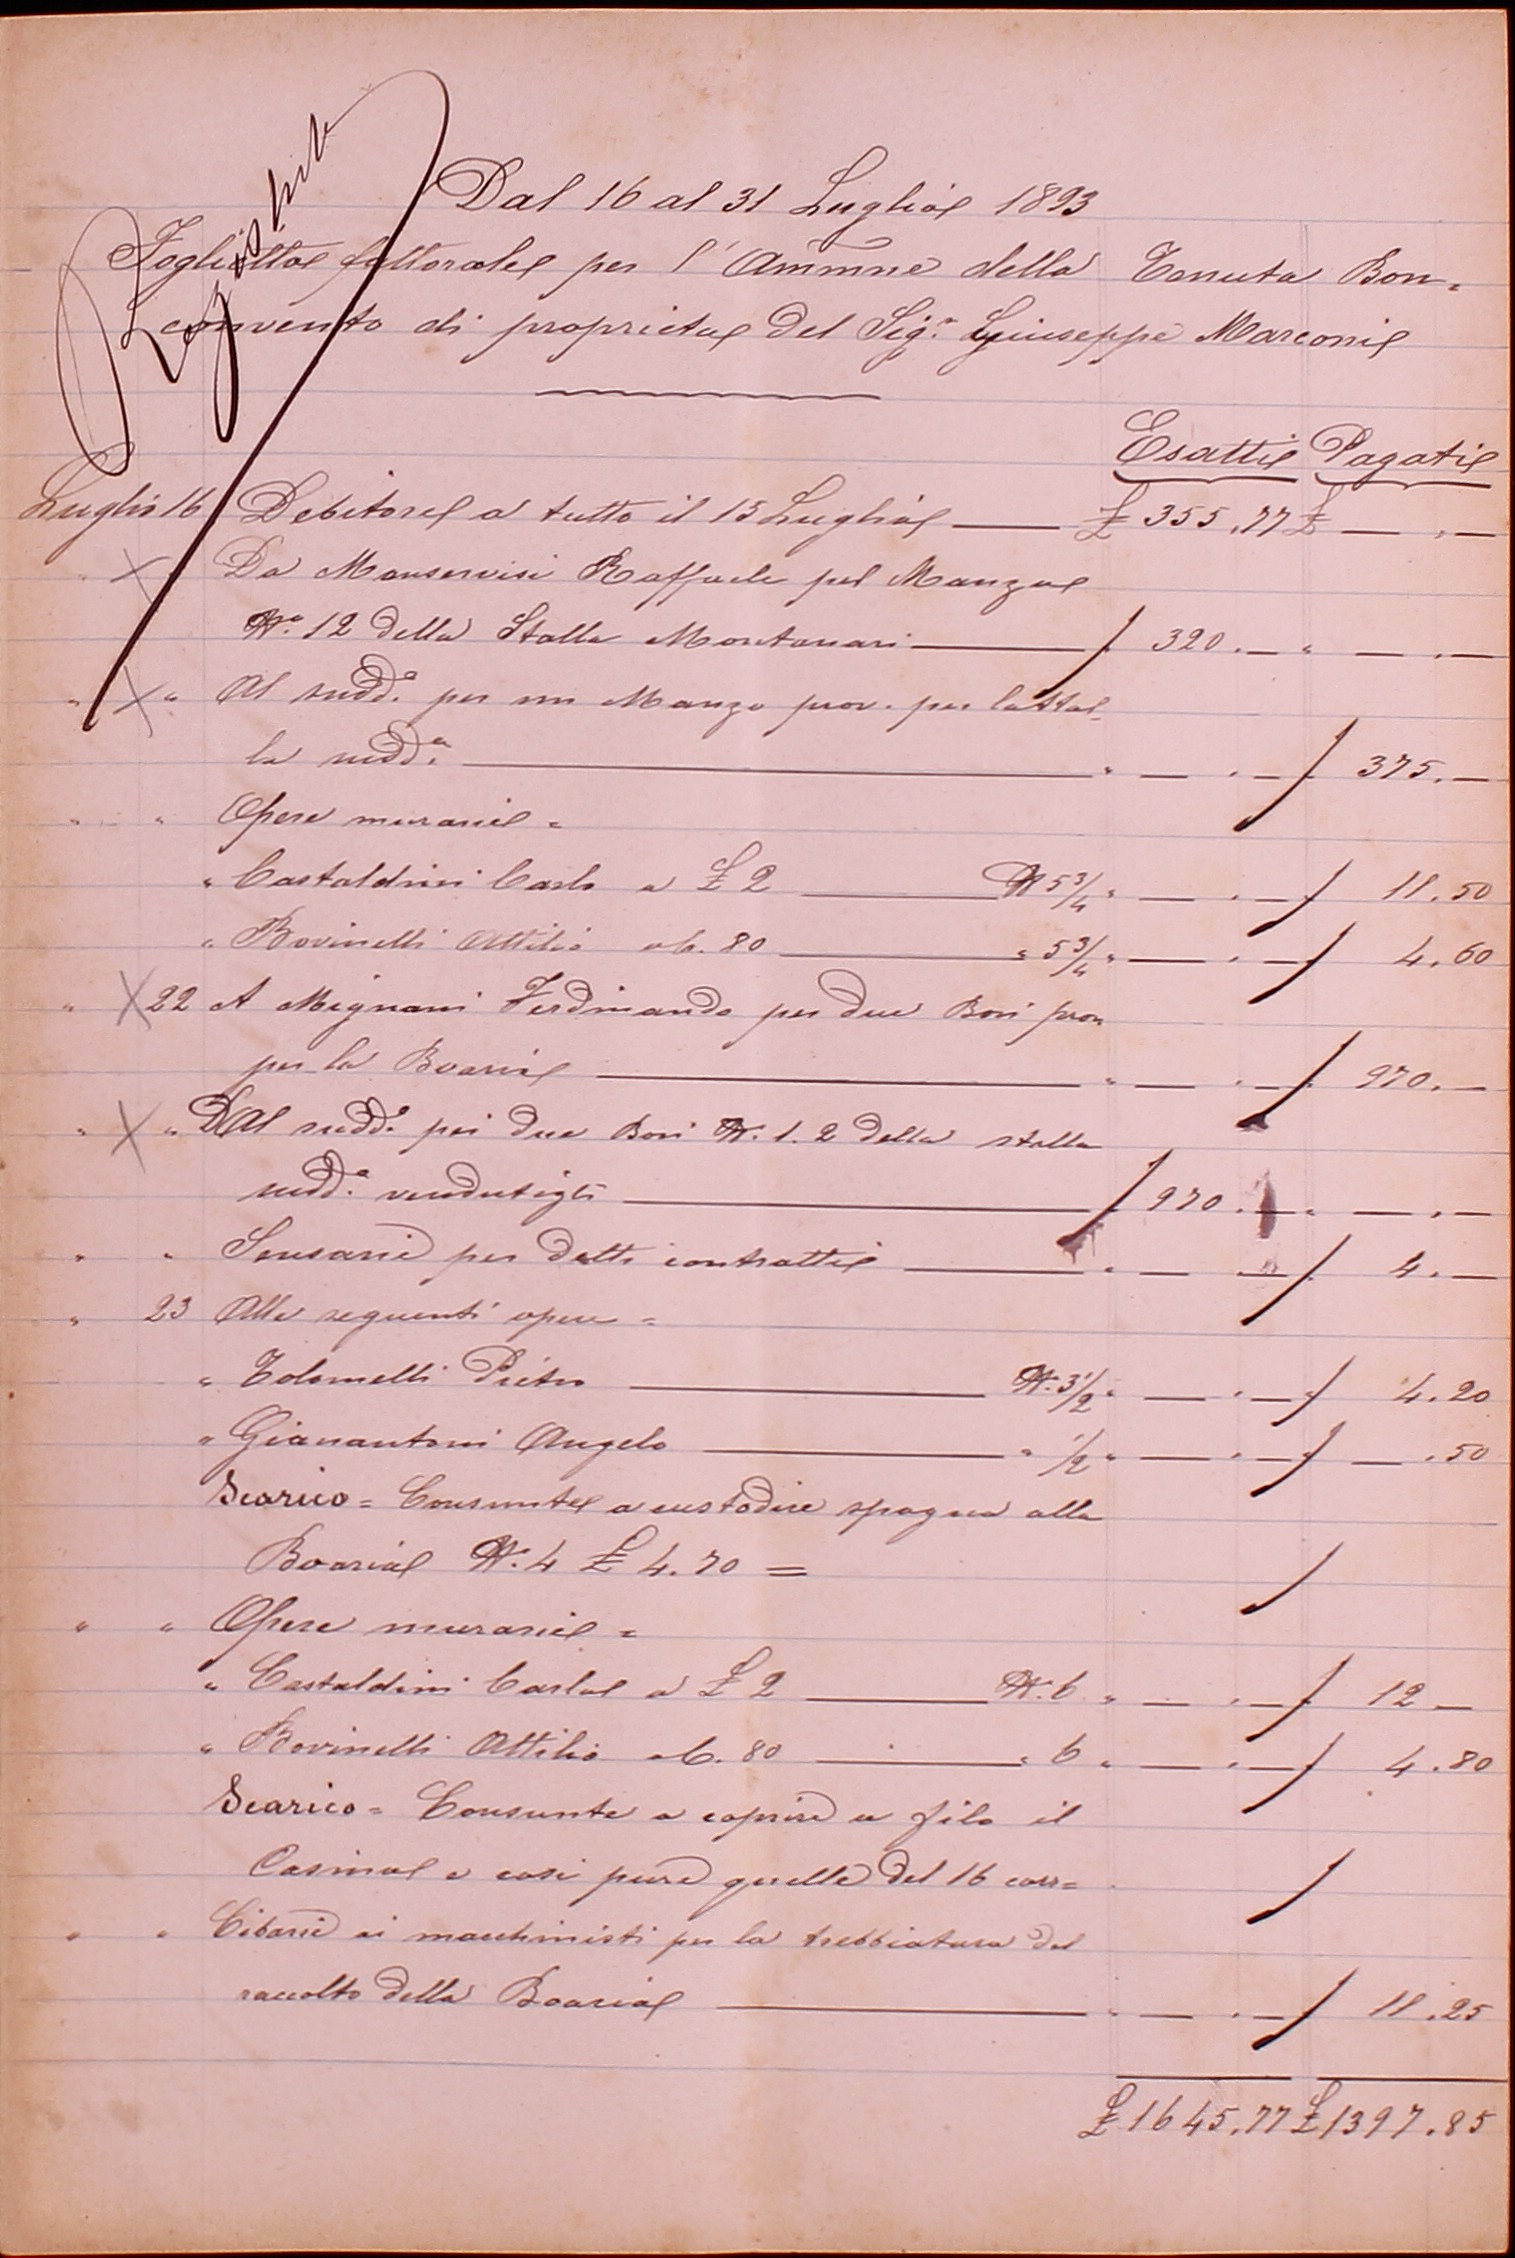 Registrato
Dal 16 al 31 Luglio 1893
Foglietto fattorale per l'Ammne della Tenuta Bon=
convento di proprietà del Sigr. Giuseppe Marconi
Esatti Pagati
Luglio 16 Debitore a tutto il 15 Luglio — £ 355.77 £ — . —
" " Da Manservisi Raffaele pel Manzo
No. 12 della Stalla Montanari — " 320. — " — . —
" " Al sudd.o per un Manzo prov. per la stal-
la sudd.a — " — . — " 375. —
" " Opere murarie =
" Castaldini Carlo a £ 2 — N 5 3/4 " — . — " 11.50
" Bovinelli Attilio a C. 80 — " 5 3/4 " — . — " 4.60
" 22 A Mignani Ferdinando per due Bovi prov
per la Boaria — " — . — " 970. —
" " Dal sudd.o per due Bovi N. 1. 2 della stalla
sudd.a vendutigli — " 970. — " — . —
" " Sensarie per detti contratti — " — . — " 4. —
" 23 Alle seguenti opere =
" Tolomelli Pietro — N. 3 1/2 " — . — " 4.20
" Gianantoni Angelo — " 1/2 " — . — " — .50
Scarico = Consunte a custodire spagna alla
Boaria N. 4 £ 4.70 =
" " Opere murarie =
" Castaldini Carlo a £ 2 — N. 6 " — . — " 12 —
" Bovinelli Attilio a C. 80 — " 6 " — . — " 4.80
Scarico = Consunte a coprire a filo il
Casino e così pure quelle del 16 corr=
" " Cibarie ai macchinisti per la trebbiatura del
raccolto della Boaria — " — . — " 11.25
£ 1645.77 £ 1397.85